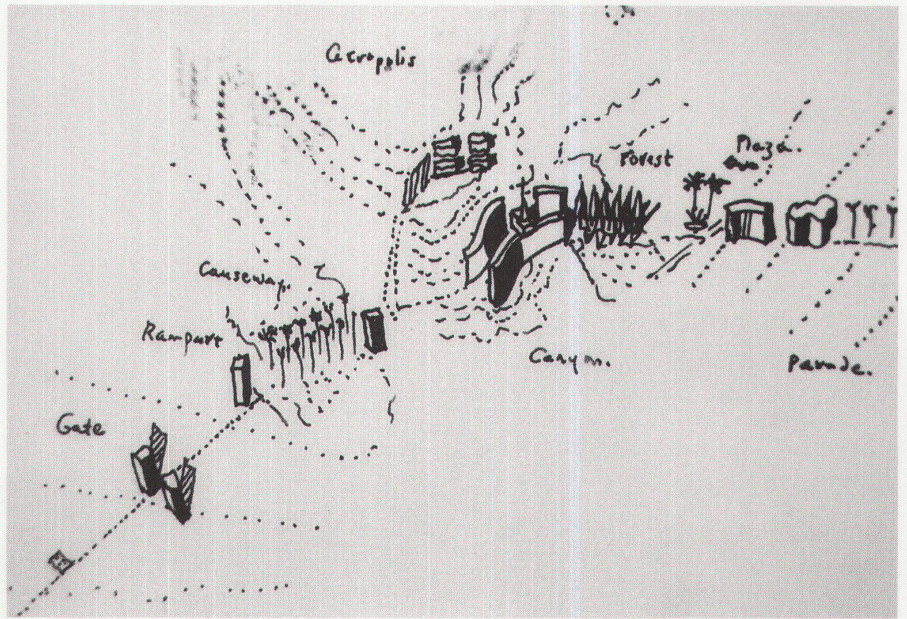 Acropolis
Plaza.
Forest
Causeway.
Rampart
Canyon.
Parade.
Gate